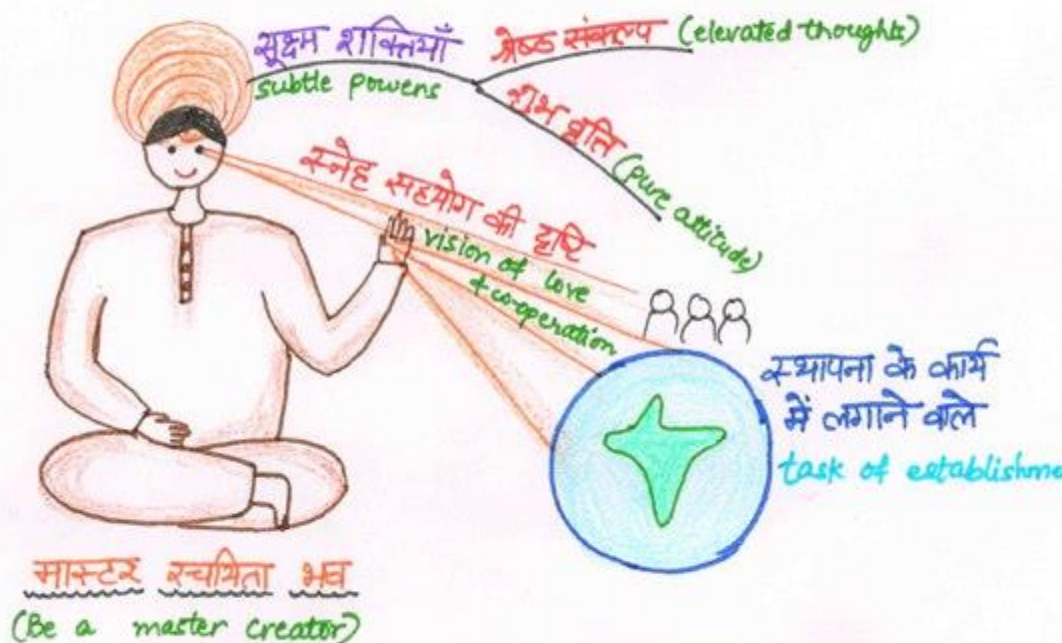 सूक्ष्म शक्तियाँ
subtle powers
श्रेष्ठ संकल्प (elevated thoughts)
शुभ वृत्ति (pure attitude)
स्नेह सहयोग की दृष्टि
vision of love
& co-operation
स्थापना के कार्य
में लगाने वाले
task of establishme
मास्टर रचयिता भव
(Be a master creator)